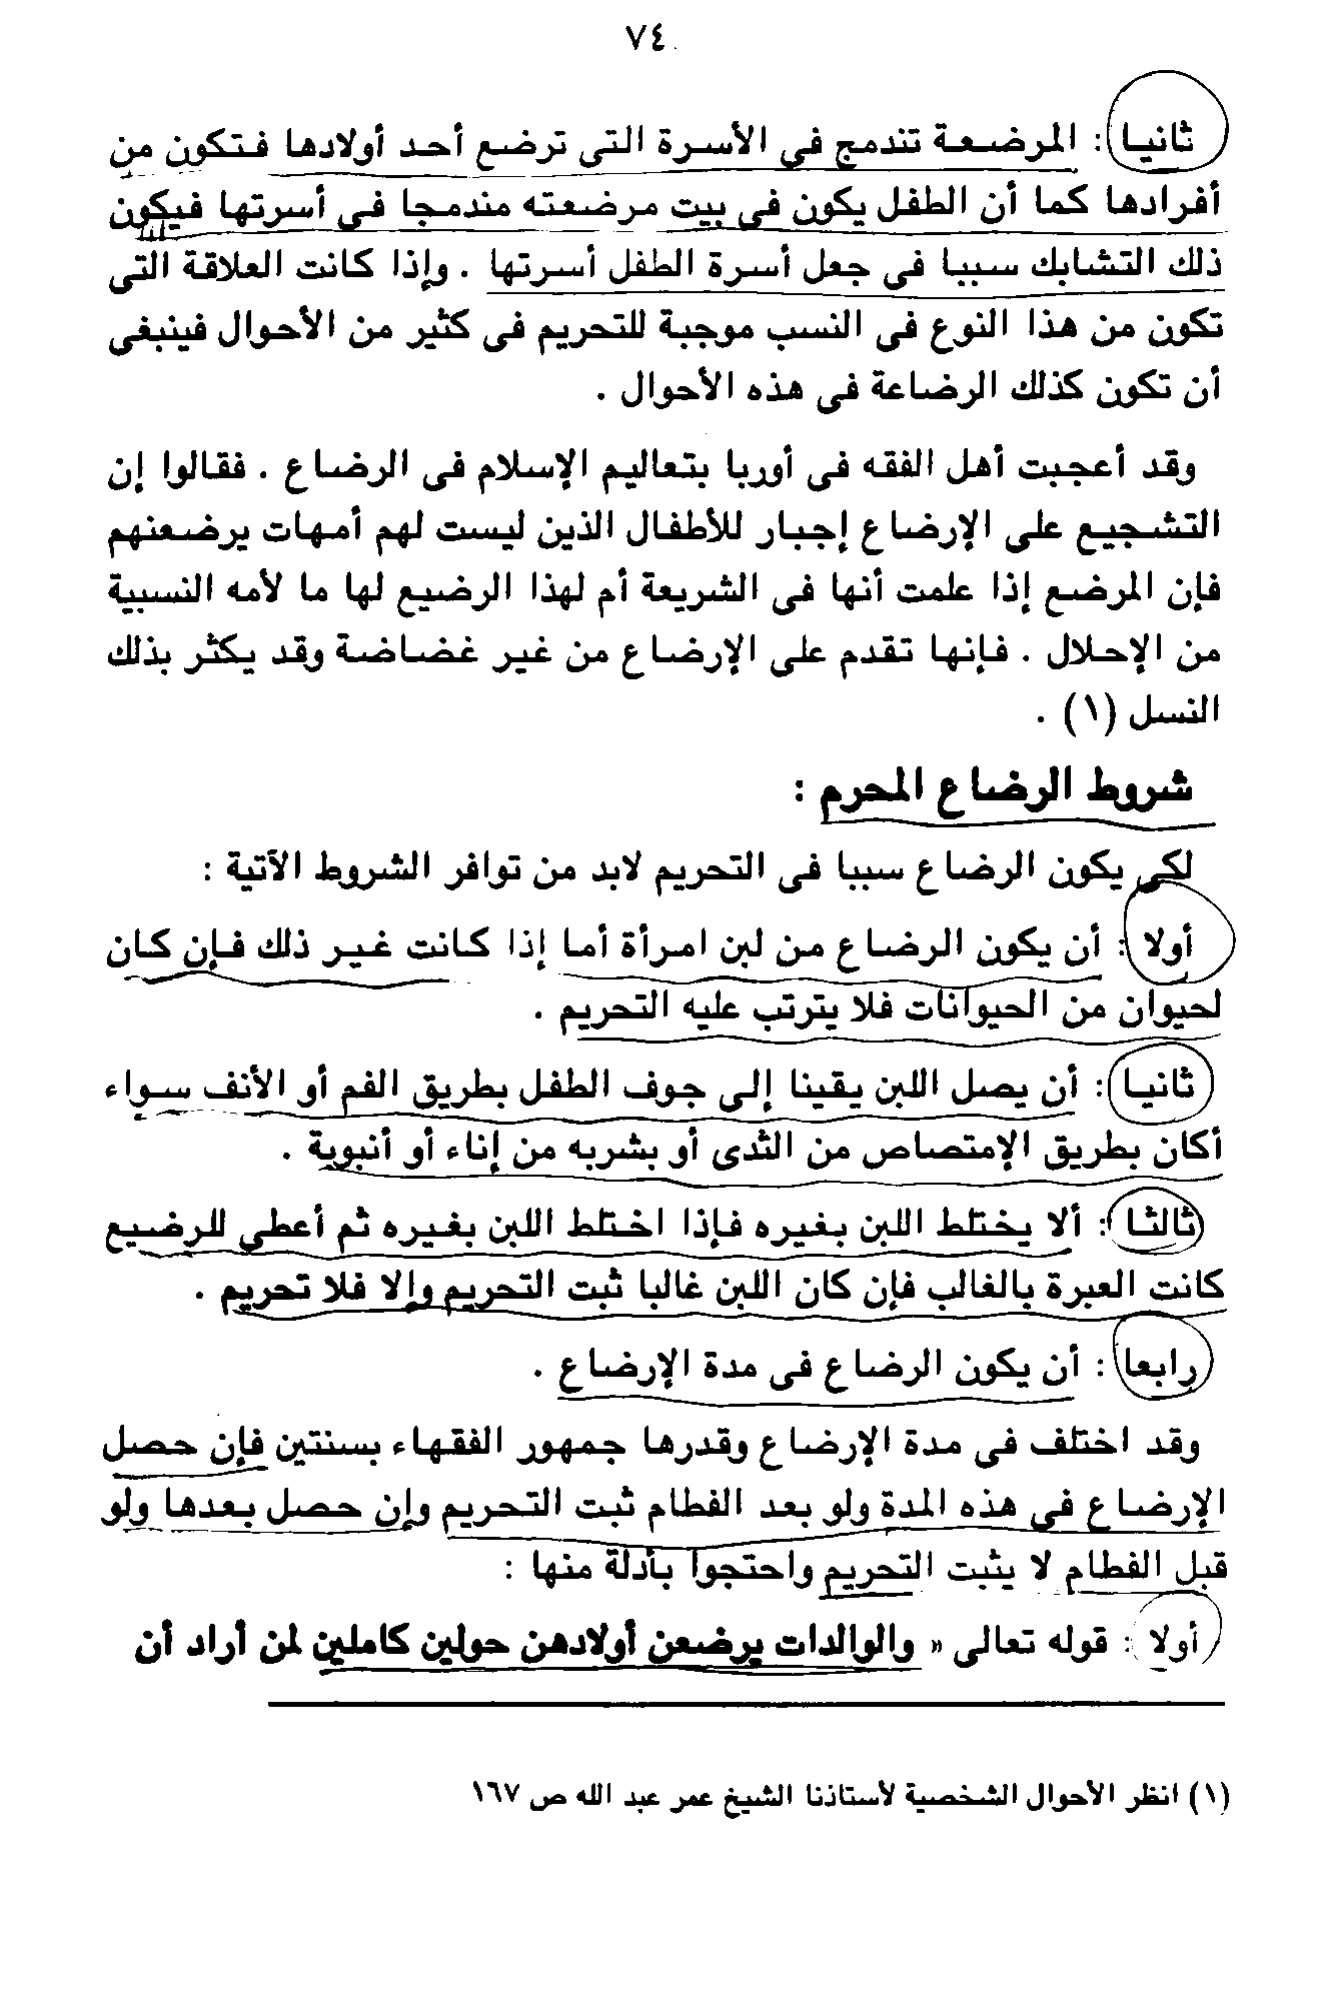 ٧٤
ثانيا : المرضعة تندمج فى الأسرة التى ترضع أحد أولادها فتكون من
أفرادها كما أن الطفل يكون فى بيت مرضعته مندمجا فى أسرتها فيكون
ذلك التشابك سببا فى جعل أسرة الطفل أسرتها . وإذا كانت العلاقة التى
تكون من هذا النوع فى النسب موجبة للتحريم فى كثير من الأحوال فينبغى
أن تكون كذلك الرضاعة فى هذه الأحوال .
وقد أعجبت أهل الفقه فى أوربا بتعاليم الإسلام فى الرضاع . فقالوا إن
التشجيع على الإرضاع إجبار للأطفال الذين ليست لهم أمهات يرضعنهم
فإن المرضع إذا علمت أنها فى الشريعة أم لهذا الرضيع لها ما لأمه النسبية
من الإحلال . فإنها تقدم على الإرضاع من غير غضاضة وقد يكثر بذلك
النسل (١) .
شروط الرضاع المحرم :
لكى يكون الرضاع سببا فى التحريم لابد من توافر الشروط الآتية :
أولا : أن يكون الرضاع من لبن امرأة أما إذا كانت غير ذلك فإن كان
لحيوان من الحيوانات فلا يترتب عليه التحريم .
ثانيا : أن يصل اللبن يقينا إلى جوف الطفل بطريق الفم أو الأنف سواء
أكان بطريق الإمتصاص من الثدى أو بشربه من إناء أو أنبوبة .
ثالثا : ألا يختلط اللبن بغيره فإذا اختلط اللبن بغيره ثم أعطي للرضيع
كانت العبرة بالغالب فإن كان اللبن غالبا ثبت التحريم وإلا فلا تحريم .
رابعا : أن يكون الرضاع فى مدة الإرضاع .
وقد اختلف فى مدة الإرضاع وقدرها جمهور الفقهاء بسنتين فإن حصل
الإرضاع فى هذه المدة ولو بعد الفطام ثبت التحريم وإن حصل بعدها ولو
قبل الفطام لا يثبت التحريم واحتجوا بأدلة منها :
أولا : قوله تعالى « والوالدات يرضعن أولادهن حولين كاملين لمن أراد أن
(١) انظر الأحوال الشخصية لأستاذنا الشيخ عمر عبد الله ص ١٦٧